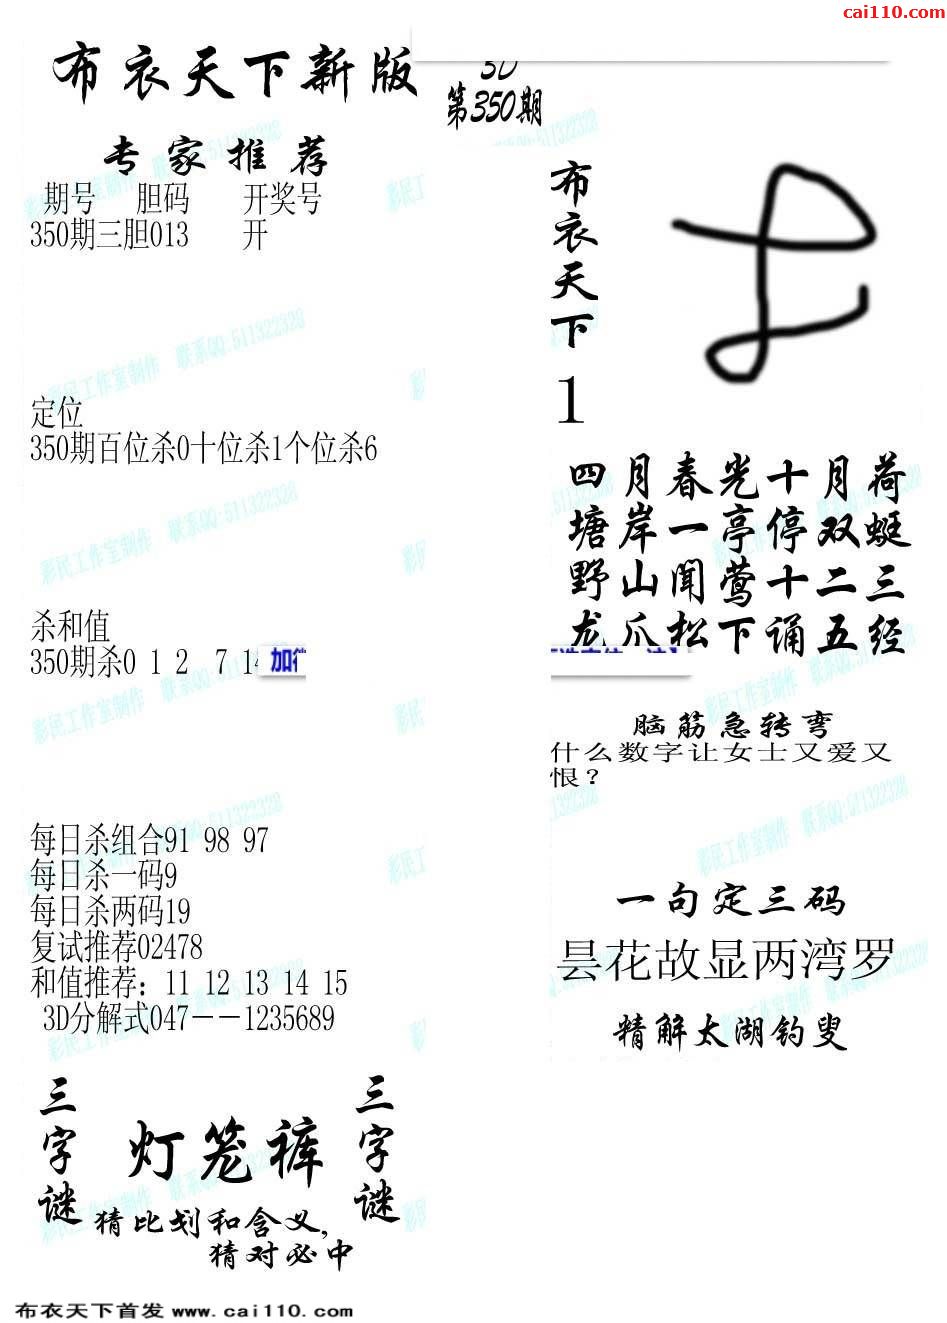 cai110.com
布衣天下新版
3D
第350期
专家推荐
期号 胆码 开奖号
350期三胆013 开
定位
350期百位杀0十位杀1个位杀6
杀和值
350期杀0 1 2 7 14
每日杀组合91 98 97
每日杀一码9
每日杀两码19
复试推荐02478
和值推荐：11 12 13 14 15
3D分解式047－－1235689
三字谜
灯笼裤
三字谜
猜比划和含义，
猜对必中
布衣天下
1
四月春光十月荷
塘岸一亭停双蜓
野山闻莺十二三
龙爪松下诵五经
脑筋急转弯
什么数字让女士又爱又
恨？
一句定三码
昙花故显两湾罗
精解太湖钓叟
彩民工作室制作 联系QQ:511322328
布衣天下首发 www.cai110.com